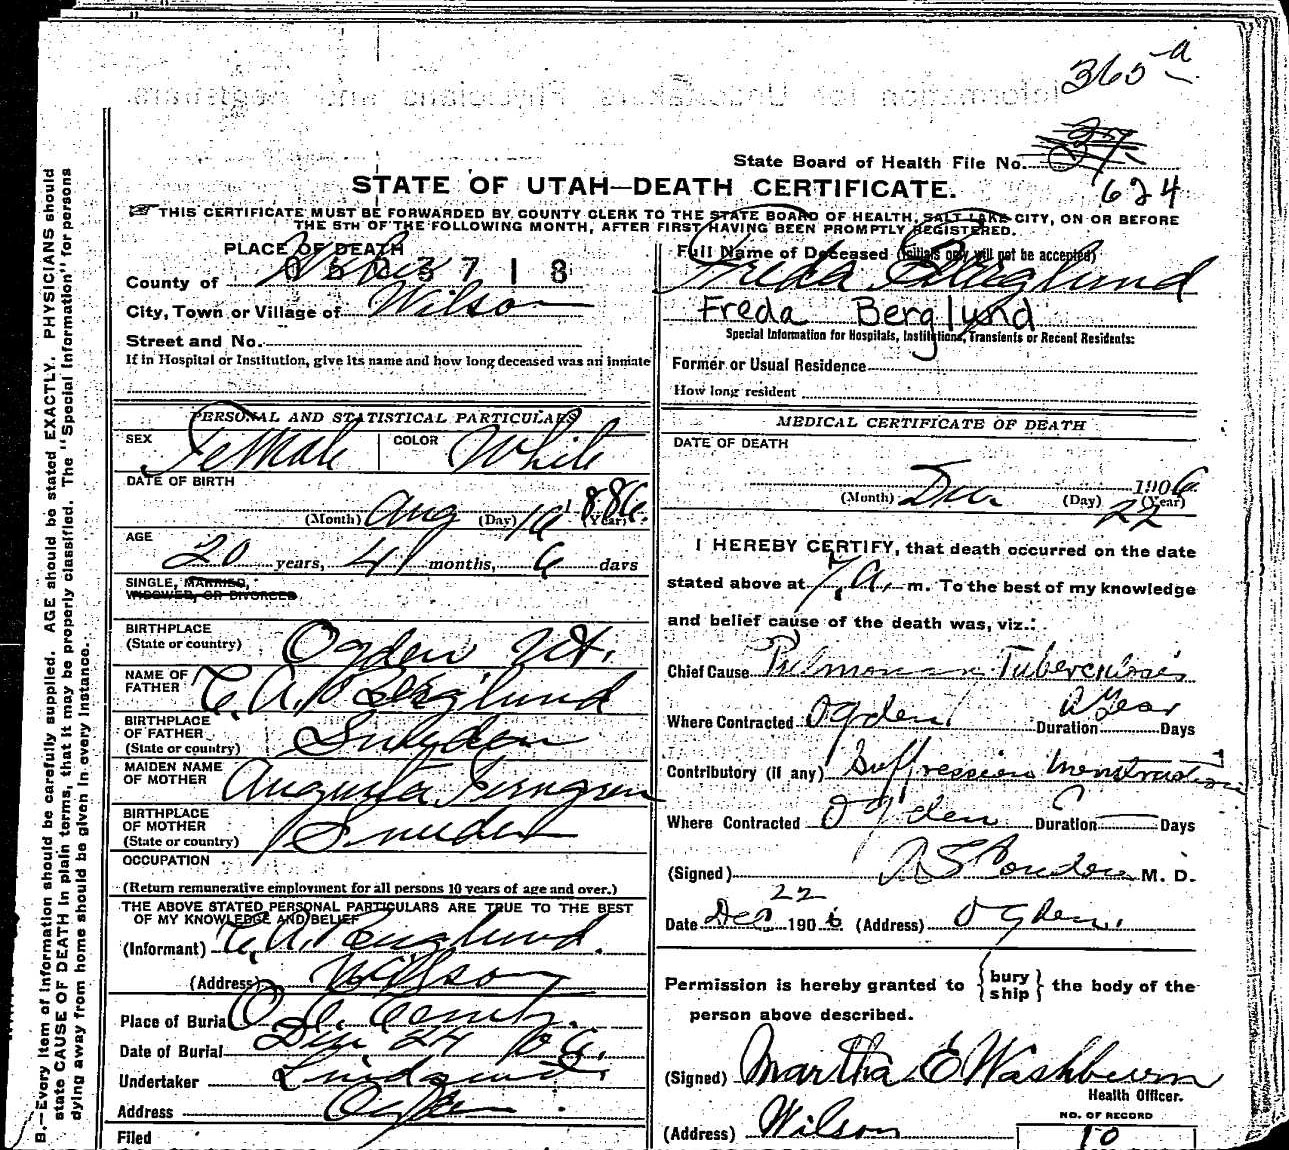 365 a
State Board of Health File No.
624
STATE OF UTAH—DEATH CERTIFICATE.
THIS CERTIFICATE MUST BE FORWARDED BY COUNTY CLERK TO THE STATE BOARD OF HEALTH, SALT LAKE CITY, ON OR BEFORE
THE 5TH OF THE FOLLOWING MONTH, AFTER FIRST HAVING BEEN PROMPTLY REGISTERED.
PLACE OF DEATH
County of Weber
City, Town or Village of Wilson
Street and No.
If in Hospital or Institution, give its name and how long deceased was an inmate
PERSONAL AND STATISTICAL PARTICULARS
SEX Female COLOR White
DATE OF BIRTH
(Month) Aug (Day) 16 1886 (Year)
AGE
20 years, 4 months, 6 days
SINGLE, MARRIED,
WIDOWED, OR DIVORCED
BIRTHPLACE
(State or country) Ogden Ut.
NAME OF
FATHER C. A. Berglund
BIRTHPLACE
OF FATHER
(State or country) Sweden
MAIDEN NAME
OF MOTHER Augusta
BIRTHPLACE
OF MOTHER
(State or country) Sweden
OCCUPATION
(Return remunerative employment for all persons 10 years of age and over.)
THE ABOVE STATED PERSONAL PARTICULARS ARE TRUE TO THE BEST
OF MY KNOWLEDGE AND BELIEF
(Informant) C. A. Berglund.
(Address) Wilson
Place of Burial
Date of Burial Dec 24 06.
Undertaker Lindquist
Address Ogden
Filed
Full Name of Deceased (Initials only will not be accepted)
Freda Berglund
Freda Berglund
Special Information for Hospitals, Institutions, Transients or Recent Residents:
Former or Usual Residence
How long resident
MEDICAL CERTIFICATE OF DEATH
DATE OF DEATH
(Month) Dec. (Day) 22 1906 (Year)
I HEREBY CERTIFY, that death occurred on the date
stated above at 7 A. m. To the best of my knowledge
and belief cause of the death was, viz.:
Chief Cause Pulmonary Tuberculosis
Where Contracted Ogden Duration a year Days
Contributory (if any) Suppression Menstruation
Where Contracted Ogden Duration Days
(Signed) M. D.
Date Dec 22 1906 (Address) Ogden.
Permission is hereby granted to { bury
ship } the body of the
person above described.
(Signed) Martha E Washburn
Health Officer.
(Address) Wilson
NO. OF RECORD
10
B.—Every item of information should be carefully supplied. AGE should be stated EXACTLY. PHYSICIANS should
state CAUSE OF DEATH in plain terms, that it may be properly classified. The "Special Information" for persons
dying away from home should be given in every instance.